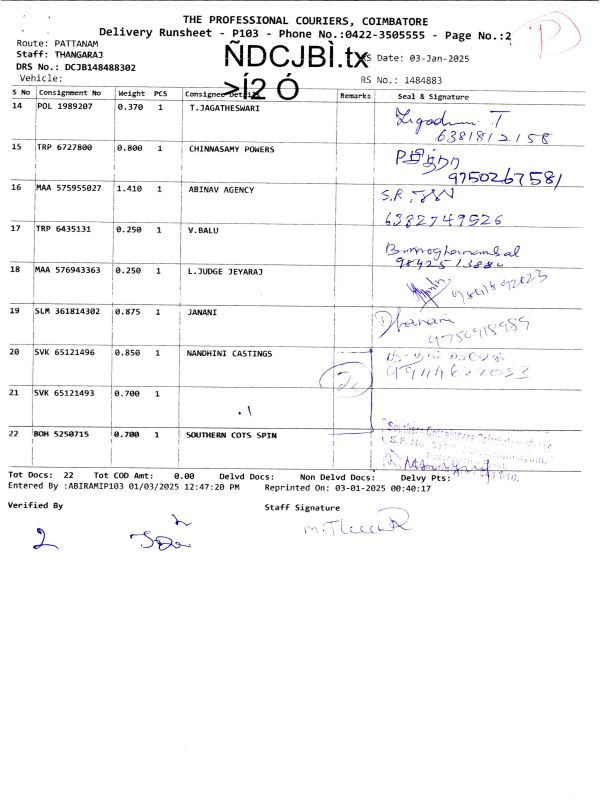 THE PROFESSIONAL COURIERS, COIMBATORE
Delivery Runsheet - P103 - Phone No.:0422-3505555 - Page No.:2
P
Route: PATTANAM
Staff: THANGARAJ
ÑDCJBÌ.tx
S Date: 03-Jan-2025
DRS No.: DCJB148488302
Vehicle:
>Í2 Ó
RS No.: 1484883
S No Consignment No Weight PCS Consignee Details Remarks Seal & Signature
14 POL 1989207 0.370 1 T.JAGATHESWARI
6381812158
15 TRP 6727800 0.800 1 CHINNASAMY POWERS
9750267581
16 MAA 575955027 1.410 1 ABINAV AGENCY S.R.
6382749526
17 TRP 6435131 0.250 1 V.BALU
18 MAA 576943363 0.250 1 L.JUDGE JEYARAJ
19 SLM 361814302 0.875 1 JANANI Dhanam
20 SVK 65121496 0.850 1 NANDHINI CASTINGS
2
21 SVK 65121493 0.700 1
22 BOH 5250715 0.700 1 SOUTHERN COTS SPIN
Tot Docs: 22 Tot COD Amt: 0.00 Delvd Docs: Non Delvd Docs: Delvy Pts:
Entered By :ABIRAMIP103 01/03/2025 12:47:20 PM Reprinted On: 03-01-2025 00:40:17
Verified By Staff Signature
2